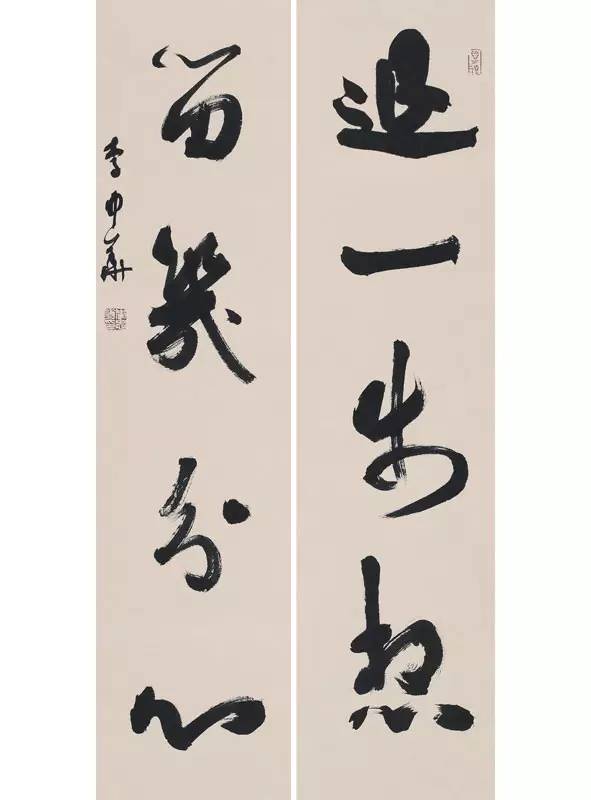 退一步想
留幾分心
李中華